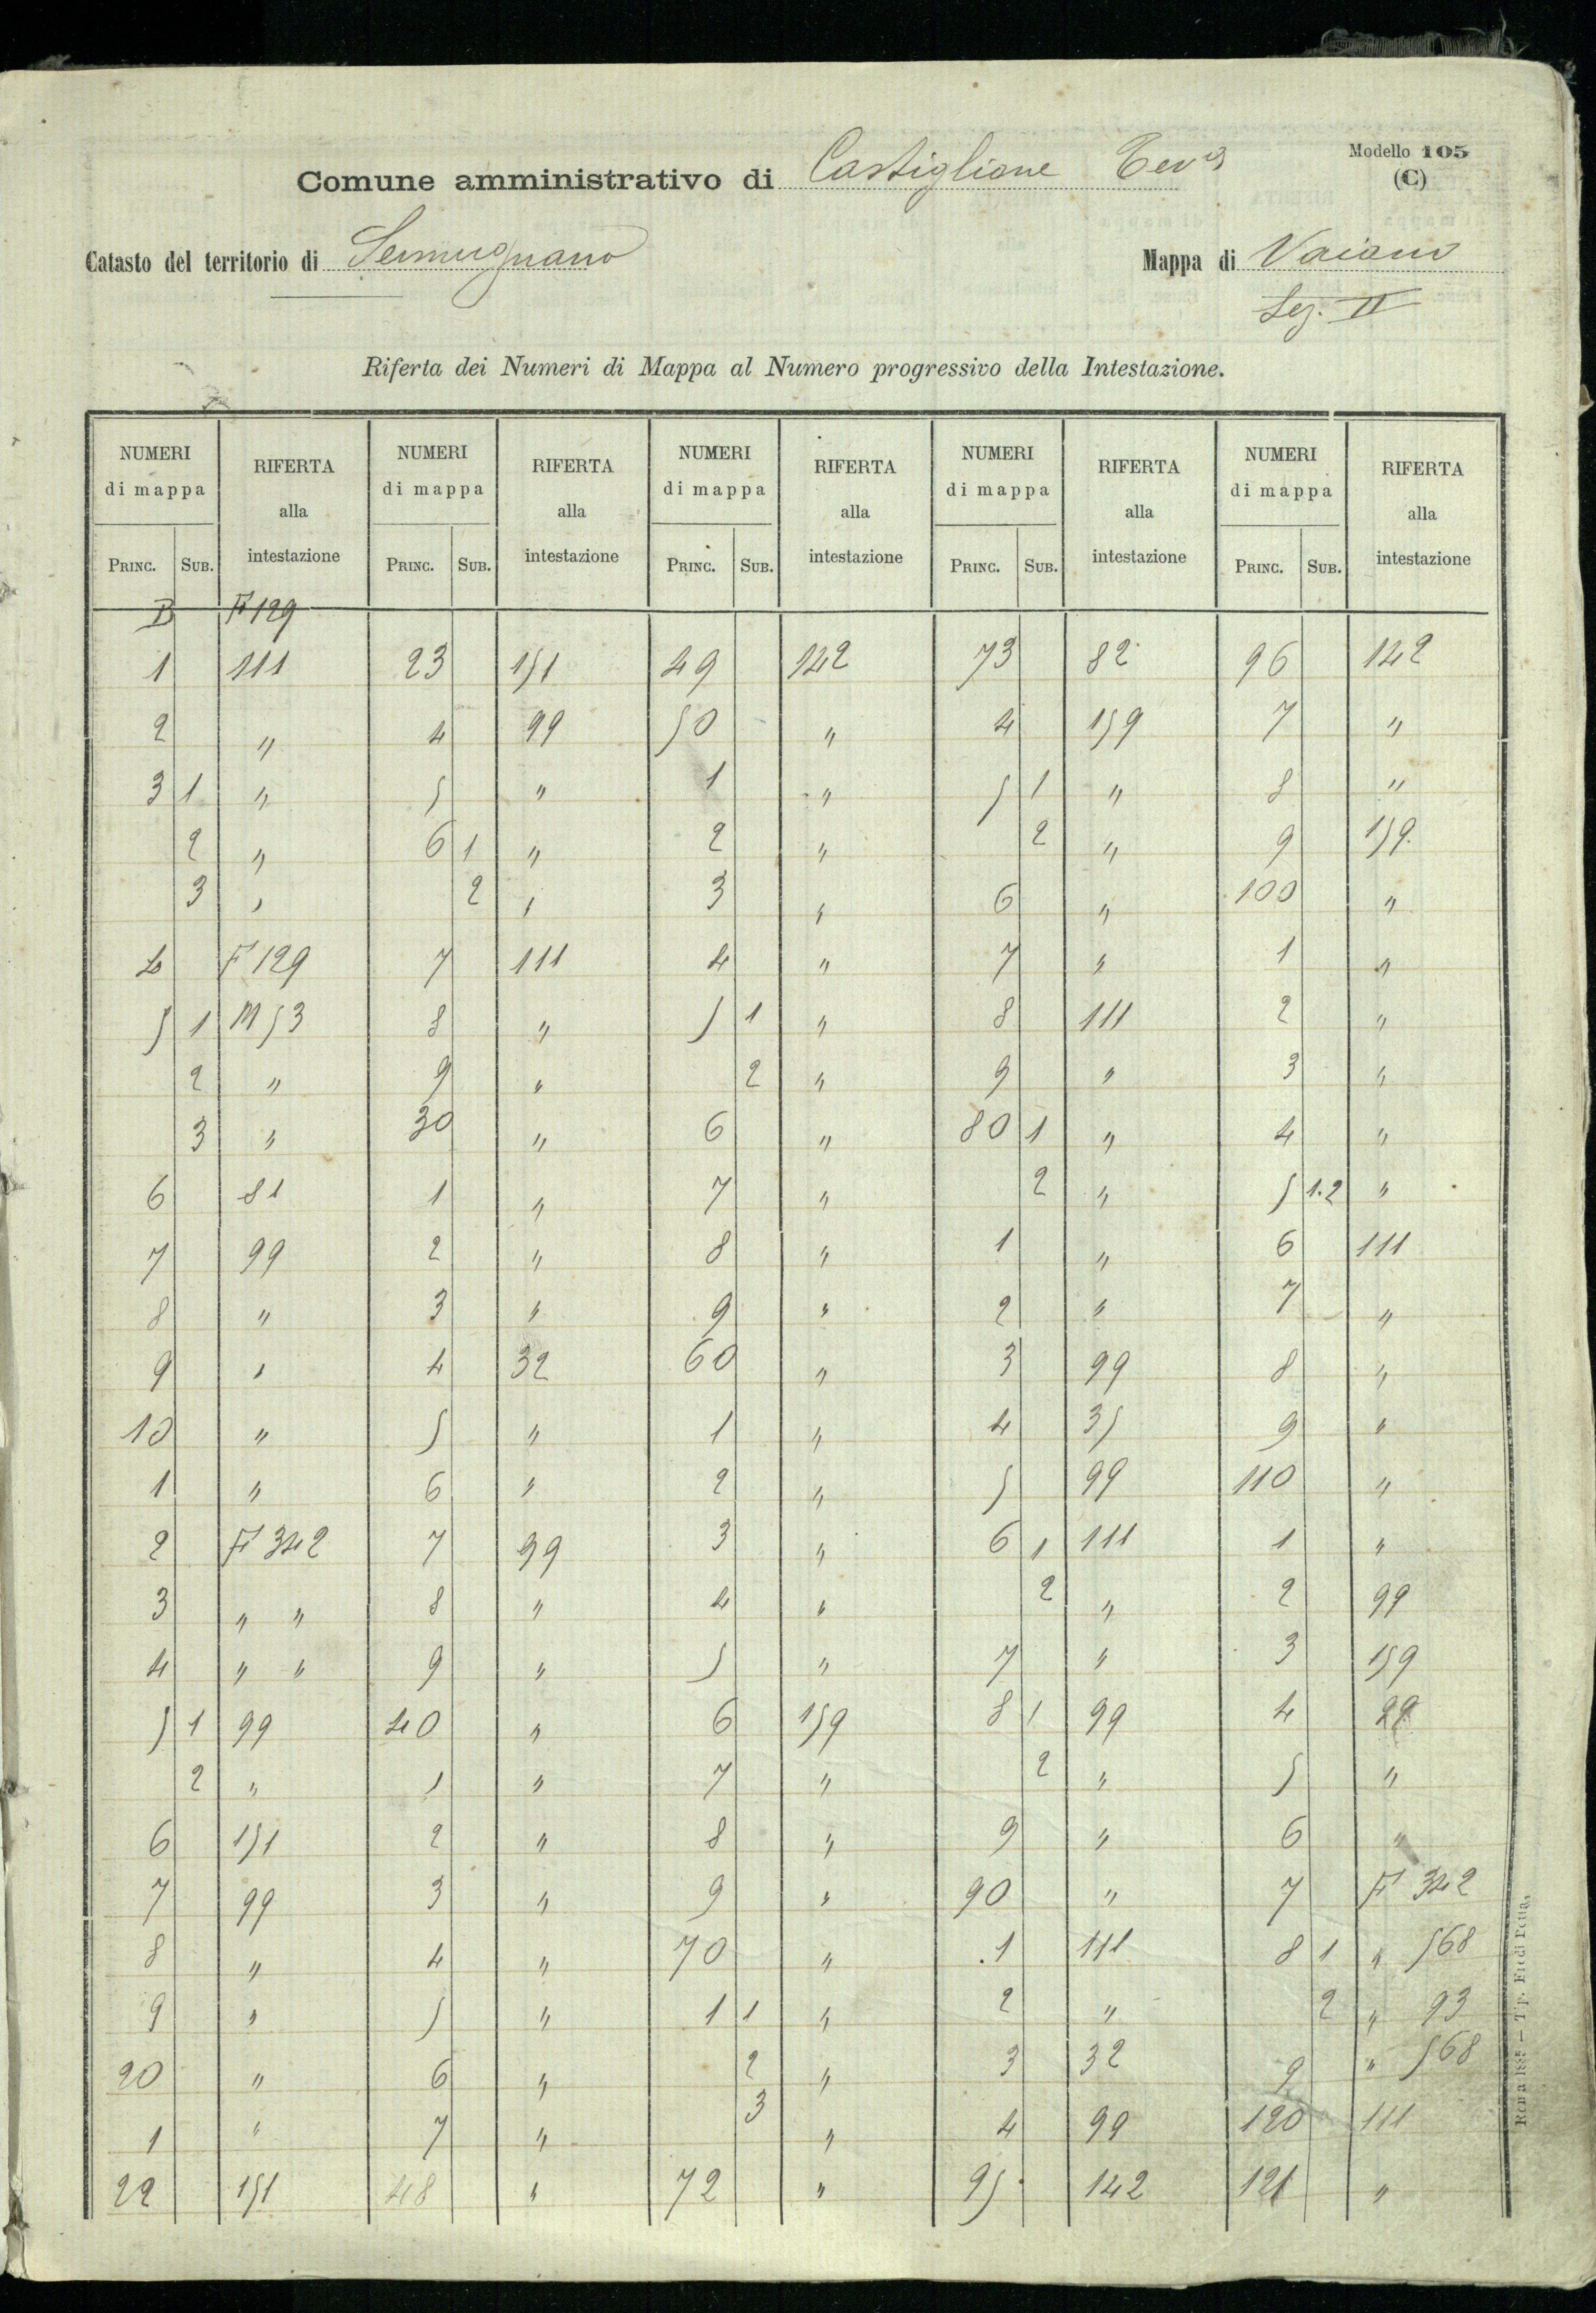 Modello 105
(C)
Comune amministrativo di Castiglione Tev.
Catasto del territorio di Sermugnano Mappa di Vaiano
Sez. II
Riferta dei Numeri di Mappa al Numero progressivo della Intestazione.
NUMERI di mappa RIFERTA alla intestazione NUMERI di mappa RIFERTA alla intestazione NUMERI di mappa RIFERTA alla intestazione NUMERI di mappa RIFERTA alla intestazione NUMERI di mappa RIFERTA alla intestazione
PRINC. SUB. PRINC. SUB. PRINC. SUB. PRINC. SUB. PRINC. SUB.
B F 129
1 111 23 151 49 142 73 82 96 142
2 " 4 99 50 " 4 159 7 "
3 1 " 5 " 1 " 5 1 " 8 "
2 " 6 1 " 2 " 2 " 9 159
3 " 2 " 3 " 6 " 100 "
L F 129 7 111 4 " 7 " 1 "
5 1 M 53 8 " 5 1 " 8 111 2 "
2 " 9 " 2 " 9 " 3 "
3 " 30 " 6 " 80 1 " 4 "
6 81 1 " 7 " 2 " 5 1.2 "
7 99 2 " 8 " 1 " 6 111
8 " 3 " 9 " 2 " 7 "
9 " 4 32 60 " 3 99 8 "
10 " 5 " 1 " 4 35 9 "
1 " 6 " 2 " 5 99 110 "
2 F 342 7 99 3 " 6 1 111 1 "
3 " " 8 " 4 " 2 " 2 99
4 " " 9 " 5 " 7 " 3 159
5 1 99 40 " 6 159 8 1 99 4 99
2 " 1 " 7 " 2 " 5 "
6 151 2 " 8 " 9 " 6 "
7 99 3 " 9 " 90 " 7 F 342
8 " 4 " 70 " 1 111 8 1 " 568
9 " 5 " 1 1 " 2 " 2 " 93
20 " 6 " 2 " 3 32 9 " 568
1 " 7 " 3 " 4 99 120 111
22 151 48 " 72 " 95 142 121 "